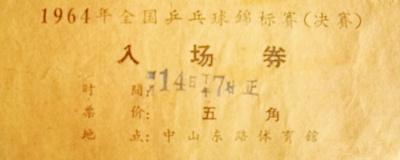 1964年全国乒乓球錦标賽(决賽)
入场券
时間:14日下午7时正
票价:五角
地点:中山东路体育館